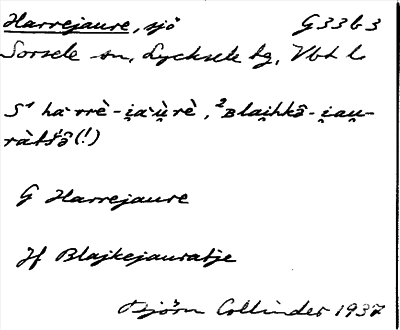 Harrejaure, sjö G33b3
Sorsele sn, Lycksele lg, Vbt l.
S¹ ha·rrè-i̯a·ù̯rè, ²Blai̯hkô-i̯au̯-
ràt́śô(!)
G Harrejaure
Jf Blajkejauratje
Björn Collinder 1937